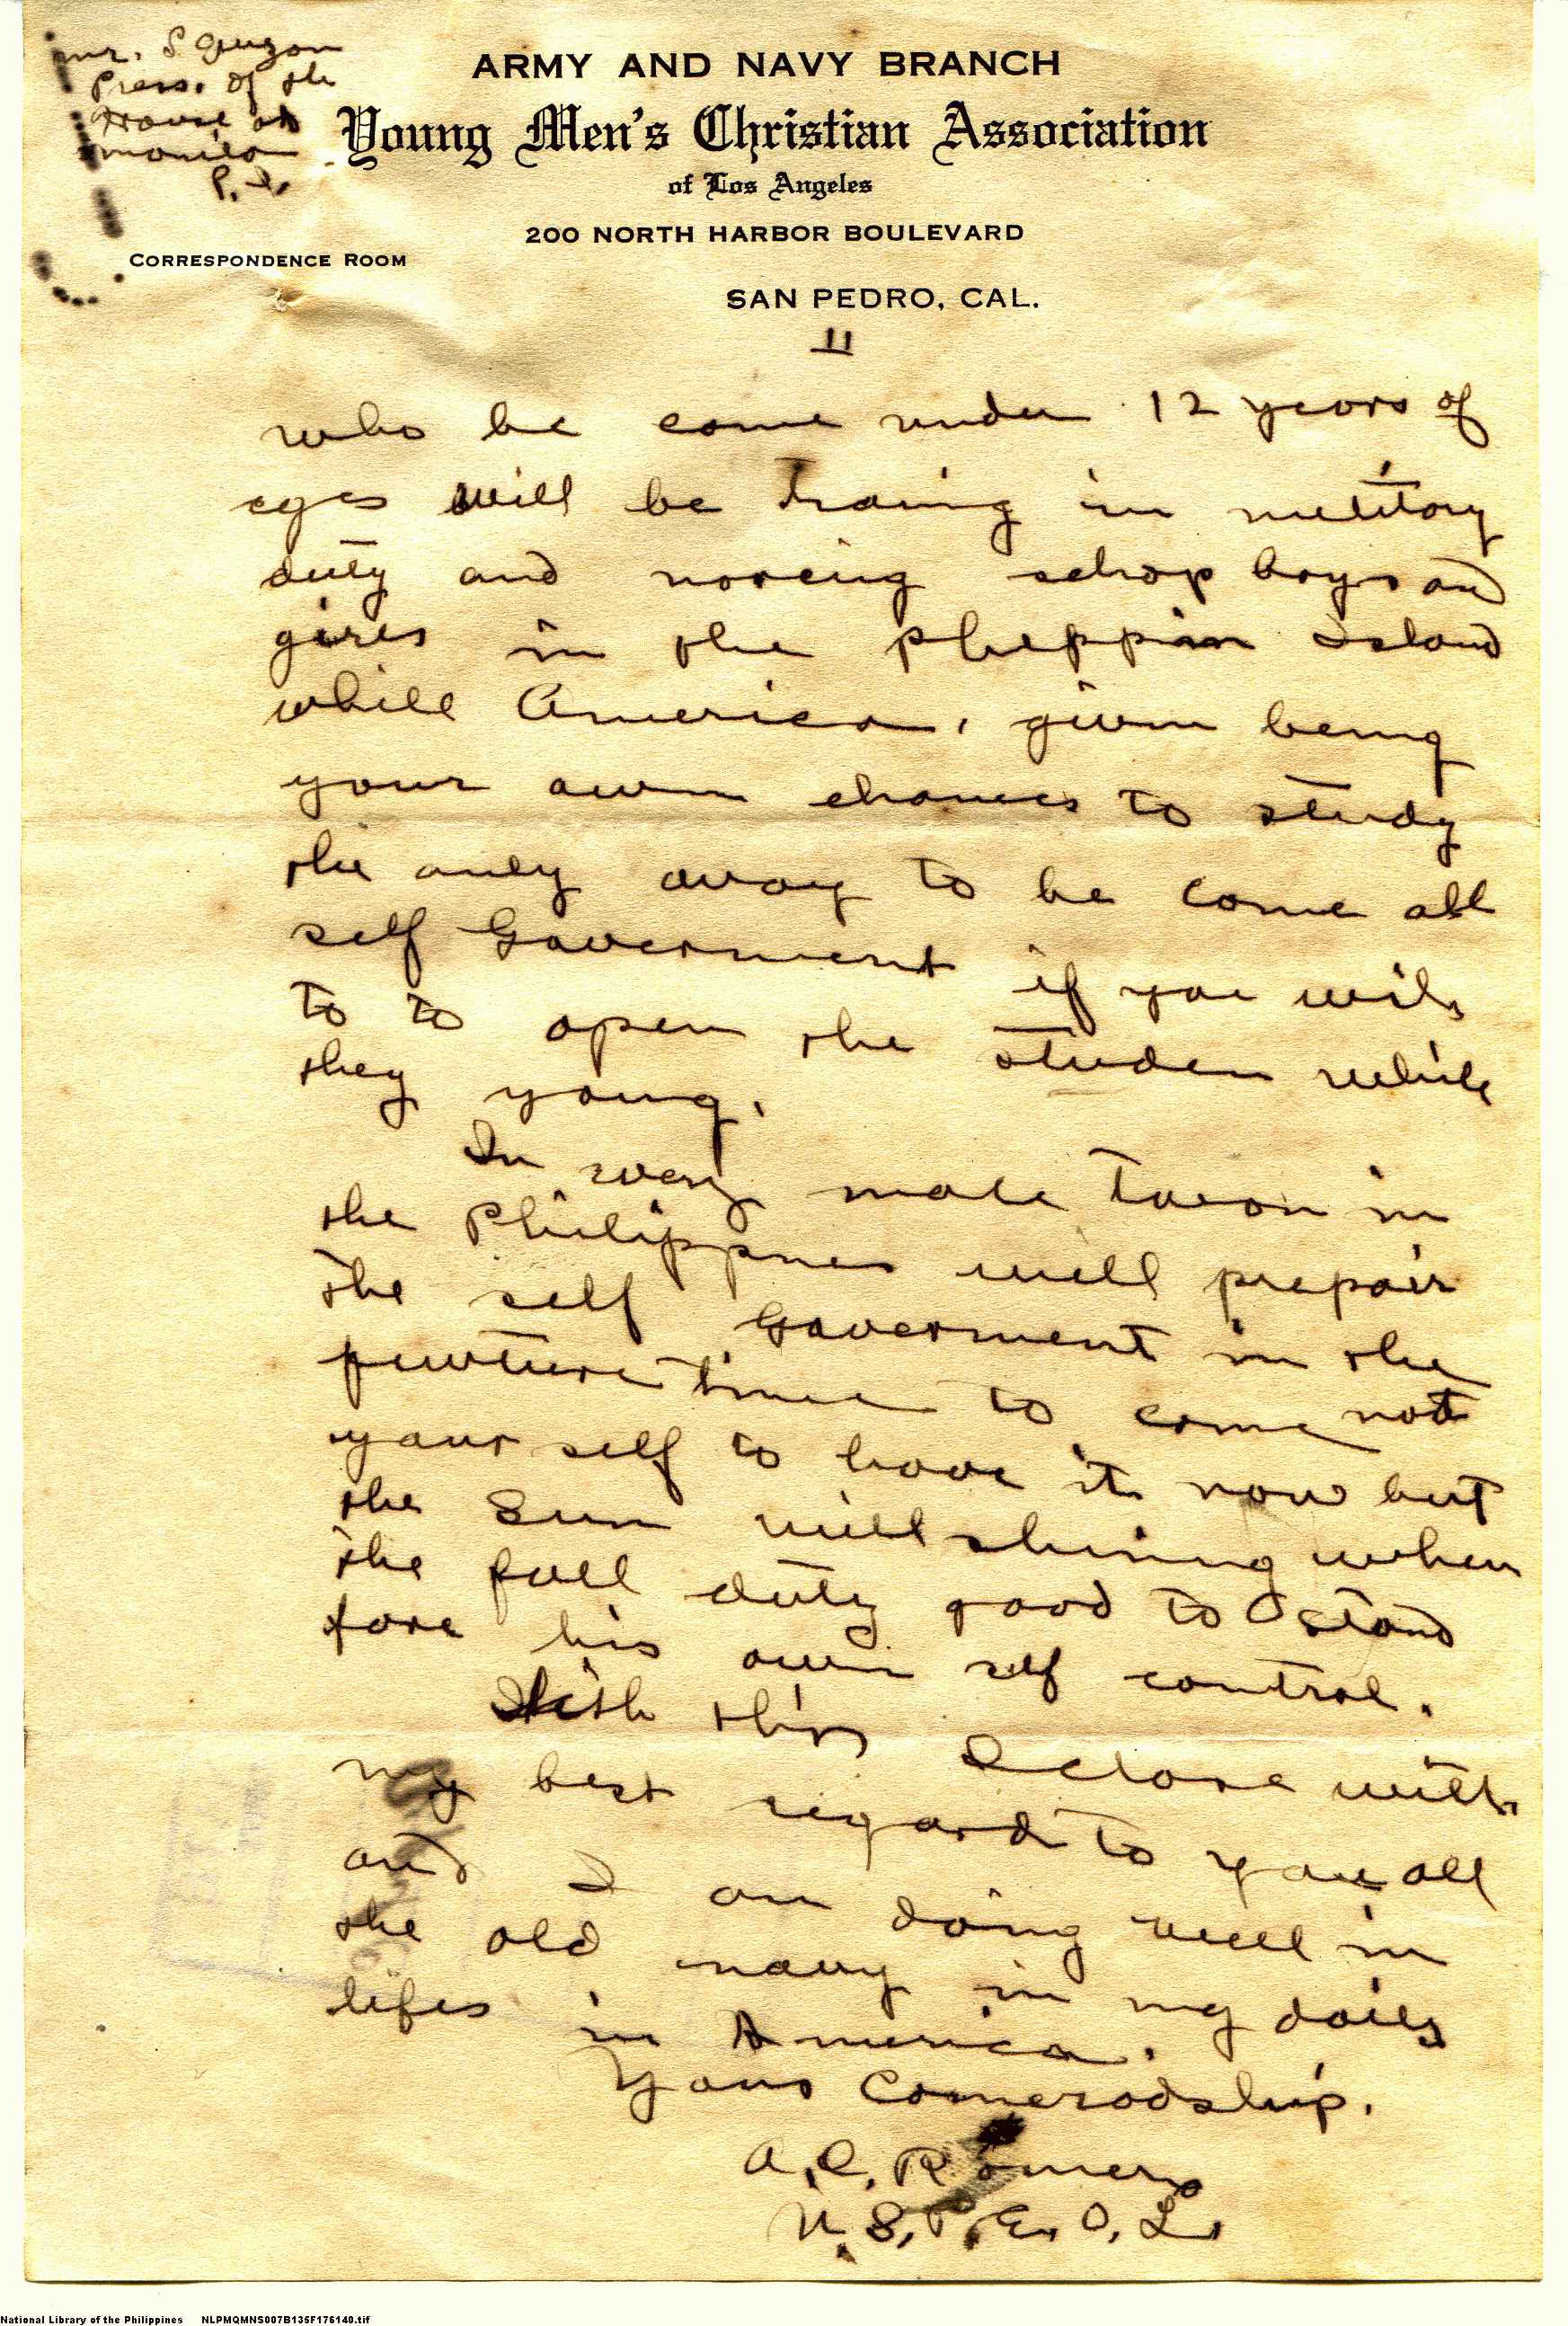 Mr. S Quezon
Press. of the
House of
Manila
P. I.
ARMY AND NAVY BRANCH
Young Men's Christian Association
of Los Angeles
200 NORTH HARBOR BOULEVARD
CORRESPONDENCE ROOM
SAN PEDRO, CAL.
II
who be come under 12 years of
eges will be traing in military
duty and norcing schop boys and
gires in the pheppin Island
while America, givin being
your own chances to study
the only away to be come all
self Goverment if you will
to to open the studen while
they young.
In very male town in
the Philippnes will prepair
the self Goverment in the
puwture time to come not
your self to have it now but
the Sun will shining when
the full duty good to stand
fore his own self control.
With this I close with
my best regard to you all
and I am doing well in
the old navy in my daily
lifes in America.
Yours Comeradship.
A. C. Romero
U. S. P. E. O. L.
National Library of the Philippines NLPMQMNS007B135F176140.tif